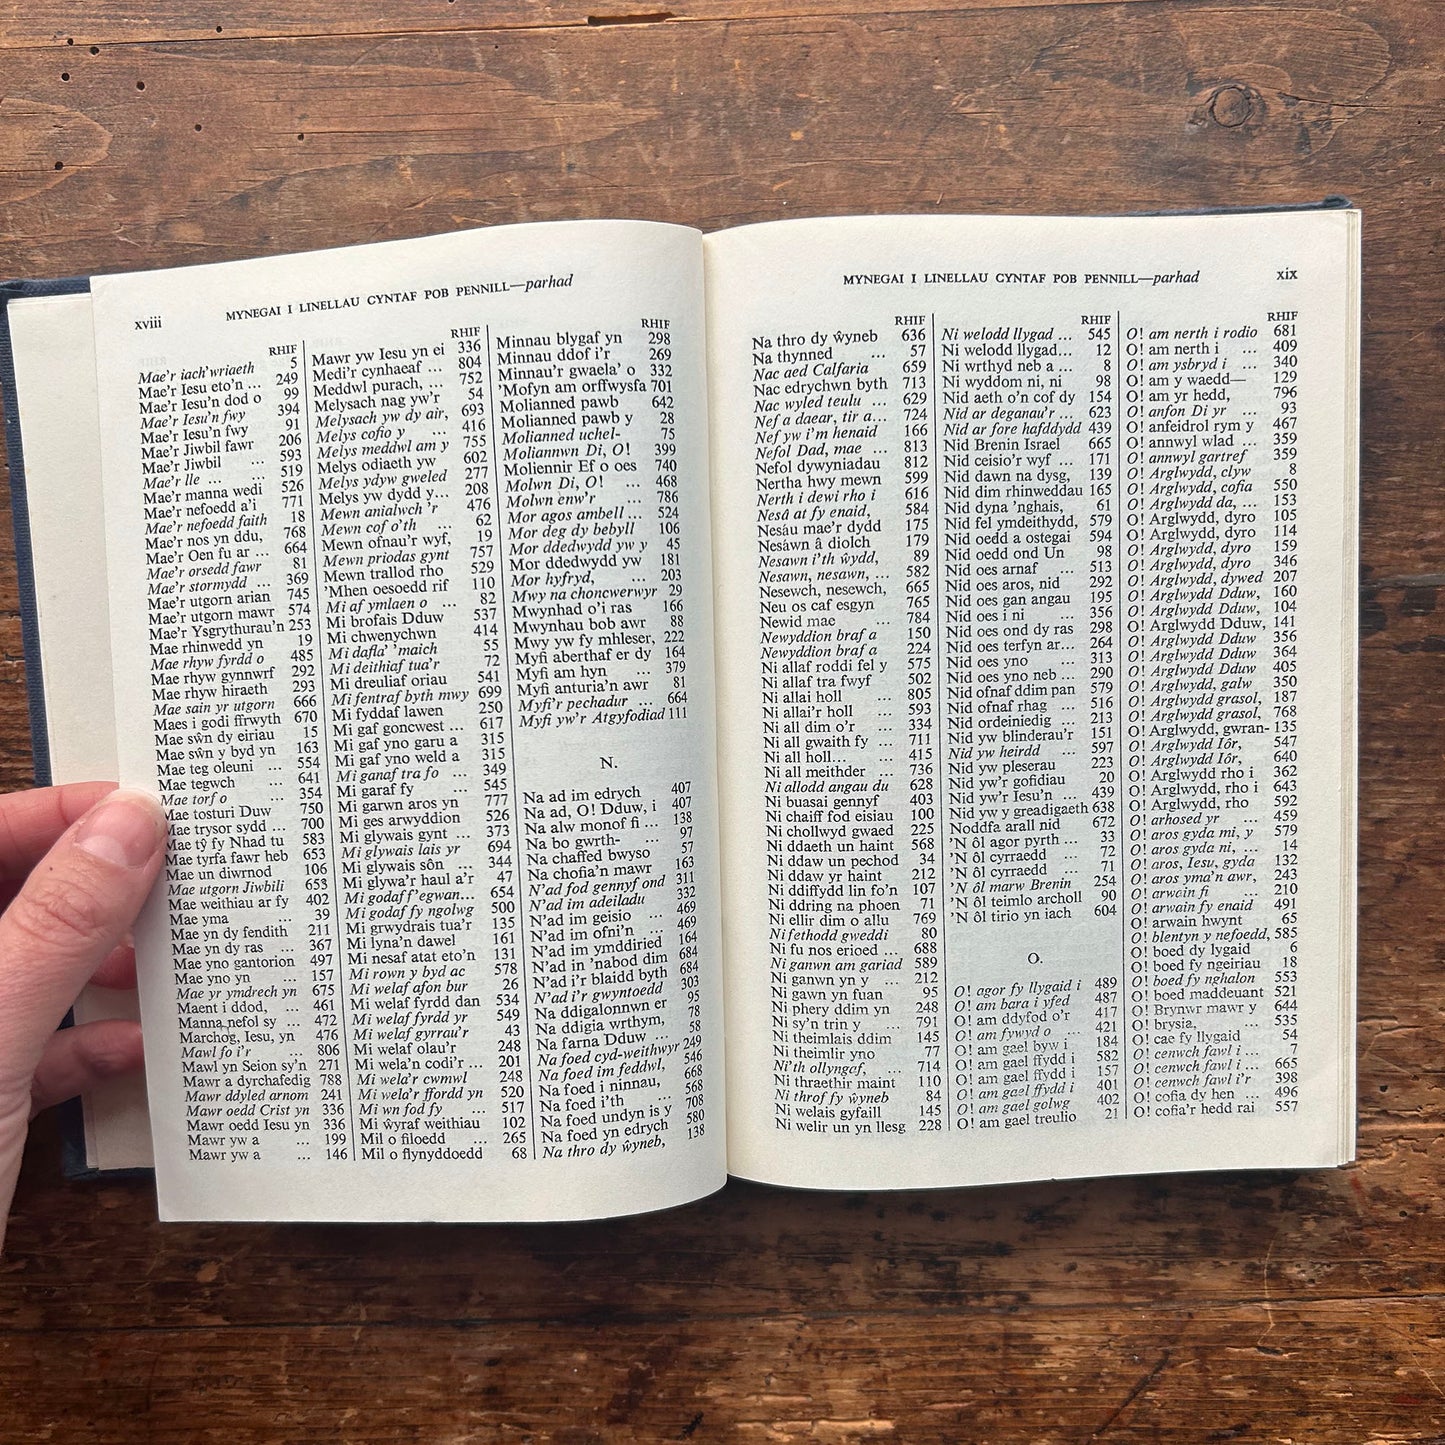 xviii
MYNEGAI I LINELLAU CYNTAF POB PENNILL—parhad
RHIF
Mae'r iach'wriaeth 5
Mae'r Iesu eto'n ... 249
Mae'r Iesu'n dod o 99
Mae'r Iesu'n fwy 394
Mae'r Iesu'n fwy 91
Mae'r Jiwbil fawr 206
Mae'r Jiwbil ... 593
Mae'r lle ... ... 519
Mae'r manna wedi 526
Mae'r nefoedd a'i 771
Mae'r nefoedd faith 18
Mae'r nos yn ddu, 768
Mae'r Oen fu ar ... 664
Mae'r orsedd fawr 81
Mae'r stormydd ... 369
Mae'r utgorn arian 745
Mae'r utgorn mawr 574
Mae'r Ysgrythurau'n 253
Mae rhinwedd yn 19
Mae rhyw fyrdd o 485
Mae rhyw gynnwrf 292
Mae rhyw hiraeth 293
Mae sain yr utgorn 666
Maes i godi ffrwyth 670
Mae sŵn dy eiriau 15
Mae sŵn y byd yn 163
Mae teg oleuni ... 554
Mae tegwch ... 641
Mae torf o ... 354
Mae tosturi Duw 750
Mae trysor sydd ... 700
Mae tŷ fy Nhad tu 583
Mae tyrfa fawr heb 653
Mae un diwrnod 106
Mae utgorn Jiwbili 653
Mae weithiau ar fy 402
Mae yma ... 39
Mae yn dy fendith 211
Mae yn dy ras ... 367
Mae yno gantorion 497
Mae yno yn ... 157
Mae yr ymdrech yn 675
Maent i ddod, ... 461
Manna nefol sy ... 472
Marchog, Iesu, yn 476
Mawl fo i'r ... 806
Mawl yn Seion sy'n 271
Mawr a dyrchafedig 788
Mawr ddyled arnom 241
Mawr oedd Crist yn 336
Mawr oedd Iesu yn 336
Mawr yw a ... 199
Mawr yw a ... 146
RHIF
Mawr yw Iesu yn ei 336
Medi'r cynhaeaf ... 804
Meddwl purach, ... 752
Melysach nag yw'r 54
Melysach yw dy air, 693
Melys cofio y ... 416
Melys meddwl am y 755
Melys odiaeth yw 602
Melys ydyw gweled 277
Melys yw dydd y... 208
Mewn anialwch 'r 476
Mewn cof o'th ... 62
Mewn ofnau'r wyf, 19
Mewn priodas gynt 757
Mewn trallod rho 529
'Mhen oesoedd rif 110
Mi af ymlaen o ... 82
Mi brofais Dduw 537
Mi chwenychwn 414
Mi dafla' 'maich 55
Mi deithiaf tua'r 72
Mi dreuliaf oriau 541
Mi fentraf byth mwy 699
Mi fyddaf lawen 250
Mi gaf goncwest ... 617
Mi gaf yno garu a 315
Mi gaf yno weld a 315
Mi ganaf tra fo ... 349
Mi garaf fy ... 545
Mi garwn aros yn 777
Mi ges arwyddion 526
Mi glywais gynt ... 373
Mi glywais lais yr 694
Mi glywais sôn ... 344
Mi glywa'r haul a'r 47
Mi godaf f'egwan... 654
Mi godaf fy ngolwg 500
Mi grwydrais tua'r 135
Mi lyna'n dawel 161
Mi nesaf atat eto'n 131
Mi rown y byd ac 578
Mi welaf afon bur 26
Mi welaf fyrdd dan 534
Mi welaf fyrdd yr 549
Mi welaf gyrrau'r 43
Mi welaf olau'r 248
Mi wela'n codi'r ... 201
Mi wela'r cwmwl 248
Mi wela'r ffordd yn 520
Mi wn fod fy ... 517
Mi ŵyraf weithiau 102
Mil o filoedd ... 265
Mil o flynyddoedd 68
RHIF
Minnau blygaf yn 298
Minnau ddof i'r 269
Minnau'r gwaela' o 332
'Mofyn am orffwysfa 701
Molianned pawb 642
Molianned pawb y 28
Molianned uchel- 75
Moliannwn Di, O! 399
Moliennir Ef o oes 740
Molwn Di, O! ... 468
Molwn enw'r ... 786
Mor agos ambell ... 524
Mor deg dy bebyll 106
Mor ddedwydd yw y 45
Mor ddedwydd yw 181
Mor hyfryd, ... 203
Mwy na choncwerwyr 29
Mwynhad o'i ras 166
Mwynhau bob awr 88
Mwy yw fy mhleser, 222
Myfi aberthaf er dy 164
Myfi am hyn ... 379
Myfi anturia'n awr 81
Myfi'r pechadur ... 664
Myfi yw'r Atgyfodiad 111
N.
Na ad im edrych 407
Na ad, O! Dduw, i 407
Na alw monof fi ... 138
Na bo gwrth- ... 97
Na chaffed bwyso 57
Na chofia'n mawr 163
N'ad fod gennyf ond 311
N'ad im adeiladu 332
N'ad im geisio ... 469
N'ad im ofni'n ... 469
N'ad im ymddiried 164
N'ad in 'nabod dim 684
N'ad i'r blaidd byth 684
N'ad i'r gwyntoedd 303
Na ddigalonnwn er 95
Na ddigia wrthym, 78
Na farna Dduw ... 58
Na foed cyd-weithwyr 249
Na foed im feddwl, 546
Na foed i ninnau, 668
Na foed i'th ... 568
Na foed undyn is y 708
Na foed yn edrych 580
Na thro dy ŵyneb, 138
MYNEGAI I LINELLAU CYNTAF POB PENNILL—parhad
xix
RHIF
Na thro dy ŵyneb 636
Na thynned ... 57
Nac aed Calfaria 659
Nac edrychwn byth 713
Nac wyled teulu ... 629
Nef a daear, tir a... 724
Nef yw i'm henaid 166
Nefol Dad, mae ... 813
Nefol dywyniadau 812
Nertha hwy mewn 599
Nerth i dewi rho i 616
Nesâ at fy enaid, 584
Nesáu mae'r dydd 175
Nesáwn â diolch 179
Nesawn i'th ŵydd, 89
Nesawn, nesawn, ... 582
Nesewch, nesewch, 665
Neu os caf esgyn 765
Newid mae ... 784
Newyddion braf a 150
Newyddion braf a 224
Ni allaf roddi fel y 575
Ni allaf tra fwyf 502
Ni allai holl ... 805
Ni allai'r holl ... 593
Ni all dim o'r ... 334
Ni all gwaith fy ... 711
Ni all holl... ... 415
Ni all meithder ... 736
Ni allodd angau du 628
Ni buasai gennyf 403
Ni chaiff fod eisiau 100
Ni chollwyd gwaed 225
Ni ddaeth un haint 568
Ni ddaw un pechod 34
Ni ddaw yr haint 212
Ni ddiffydd lin fo'n 107
Ni ddring na phoen 71
Ni ellir dim o allu 769
Ni fethodd gweddi 80
Ni fu nos erioed ... 688
Ni ganwn am gariad 589
Ni ganwn yn y ... 212
Ni gawn yn fuan 95
Ni phery ddim yn 248
Ni sy'n trin y ... 791
Ni theimlais ddim 145
Ni theimlir yno 77
Ni'th ollyngaf, ... 714
Ni thraethir maint 110
Ni throf fy ŵyneb 84
Ni welais gyfaill 145
Ni welir un yn llesg 228
RHIF
Ni welodd llygad ... 545
Ni welodd llygad... 12
Ni wrthyd neb a ... 8
Ni wyddom ni, ni 98
Nid aeth o'n cof dy 154
Nid ar deganau'r ... 623
Nid ar fore hafddydd 439
Nid Brenin Israel 665
Nid ceisio'r wyf ... 171
Nid dawn na dysg, 139
Nid dim rhinweddau 165
Nid dyna 'nghais, 61
Nid fel ymdeithydd, 579
Nid oedd a ostegai 594
Nid oedd ond Un 98
Nid oes arnaf ... 513
Nid oes aros, nid 292
Nid oes gan angau 195
Nid oes i ni ... 356
Nid oes ond dy ras 298
Nid oes terfyn ar... 264
Nid oes yno ... 313
Nid oes yno neb ... 290
Nid ofnaf ddim pan 579
Nid ofnaf rhag ... 516
Nid ordeiniedig ... 213
Nid yw blinderau'r 151
Nid yw heirdd ... 597
Nid yw pleserau 223
Nid yw'r gofidiau 20
Nid yw'r Iesu'n ... 439
Nid yw y greadigaeth 638
Noddfa arall nid 672
'N ôl agor pyrth ... 33
'N ôl cyrraedd ... 72
'N ôl cyrraedd ... 71
'N ôl marw Brenin 254
'N ôl teimlo archoll 90
'N ôl tirio yn iach 604
O.
O! agor fy llygaid i 489
O! am bara i yfed 487
O! am ddyfod o'r 417
O! am fywyd o ... 421
O! am gael byw i 184
O! am gael ffydd i 582
O! am gael ffydd i 157
O! am gael ffydd i 401
O! am gael golwg 402
O! am gael treulio 21
RHIF
O! am nerth i rodio 681
O! am nerth i ... 409
O! am ysbryd i ... 340
O! am y waedd— 129
O! am yr hedd, 796
O! anfon Di yr ... 93
O! anfeidrol rym y 467
O! annwyl wlad ... 359
O! annwyl gartref 359
O! Arglwydd, clyw 8
O! Arglwydd, cofia 550
O! Arglwydd, da, ... 153
O! Arglwydd, dyro 105
O! Arglwydd, dyro 114
O! Arglwydd, dyro 159
O! Arglwydd, dyro 346
O! Arglwydd, dywed 207
O! Arglwydd Dduw, 160
O! Arglwydd Dduw, 104
O! Arglwydd Dduw, 141
O! Arglwydd Dduw 356
O! Arglwydd Dduw 364
O! Arglwydd Dduw 405
O! Arglwydd, galw 350
O! Arglwydd grasol, 187
O! Arglwydd grasol, 768
O! Arglwydd, gwran- 135
O! Arglwydd Iôr, 547
O! Arglwydd Iôr, 640
O! Arglwydd rho i 362
O! Arglwydd, rho i 643
O! Arglwydd, rho 592
O! arhosed yr ... 459
O! aros gyda mi, y 579
O! aros gyda ni, ... 14
O! aros, Iesu, gyda 132
O! aros yma'n awr, 243
O! arwain fi ... 210
O! arwain fy enaid 491
O! arwain hwynt 65
O! blentyn y nefoedd, 585
O! boed dy lygaid 6
O! boed fy ngeiriau 18
O! boed fy nghalon 553
O! boed maddeuant 521
O! Brynwr mawr y 644
O! brysia, ... 535
O! cae fy llygaid 54
O! cenwch fawl i ... 7
O! cenwch fawl i ... 665
O! cenwch fawl i'r 398
O! cofia dy hen ... 496
O! cofia'r hedd rai 557